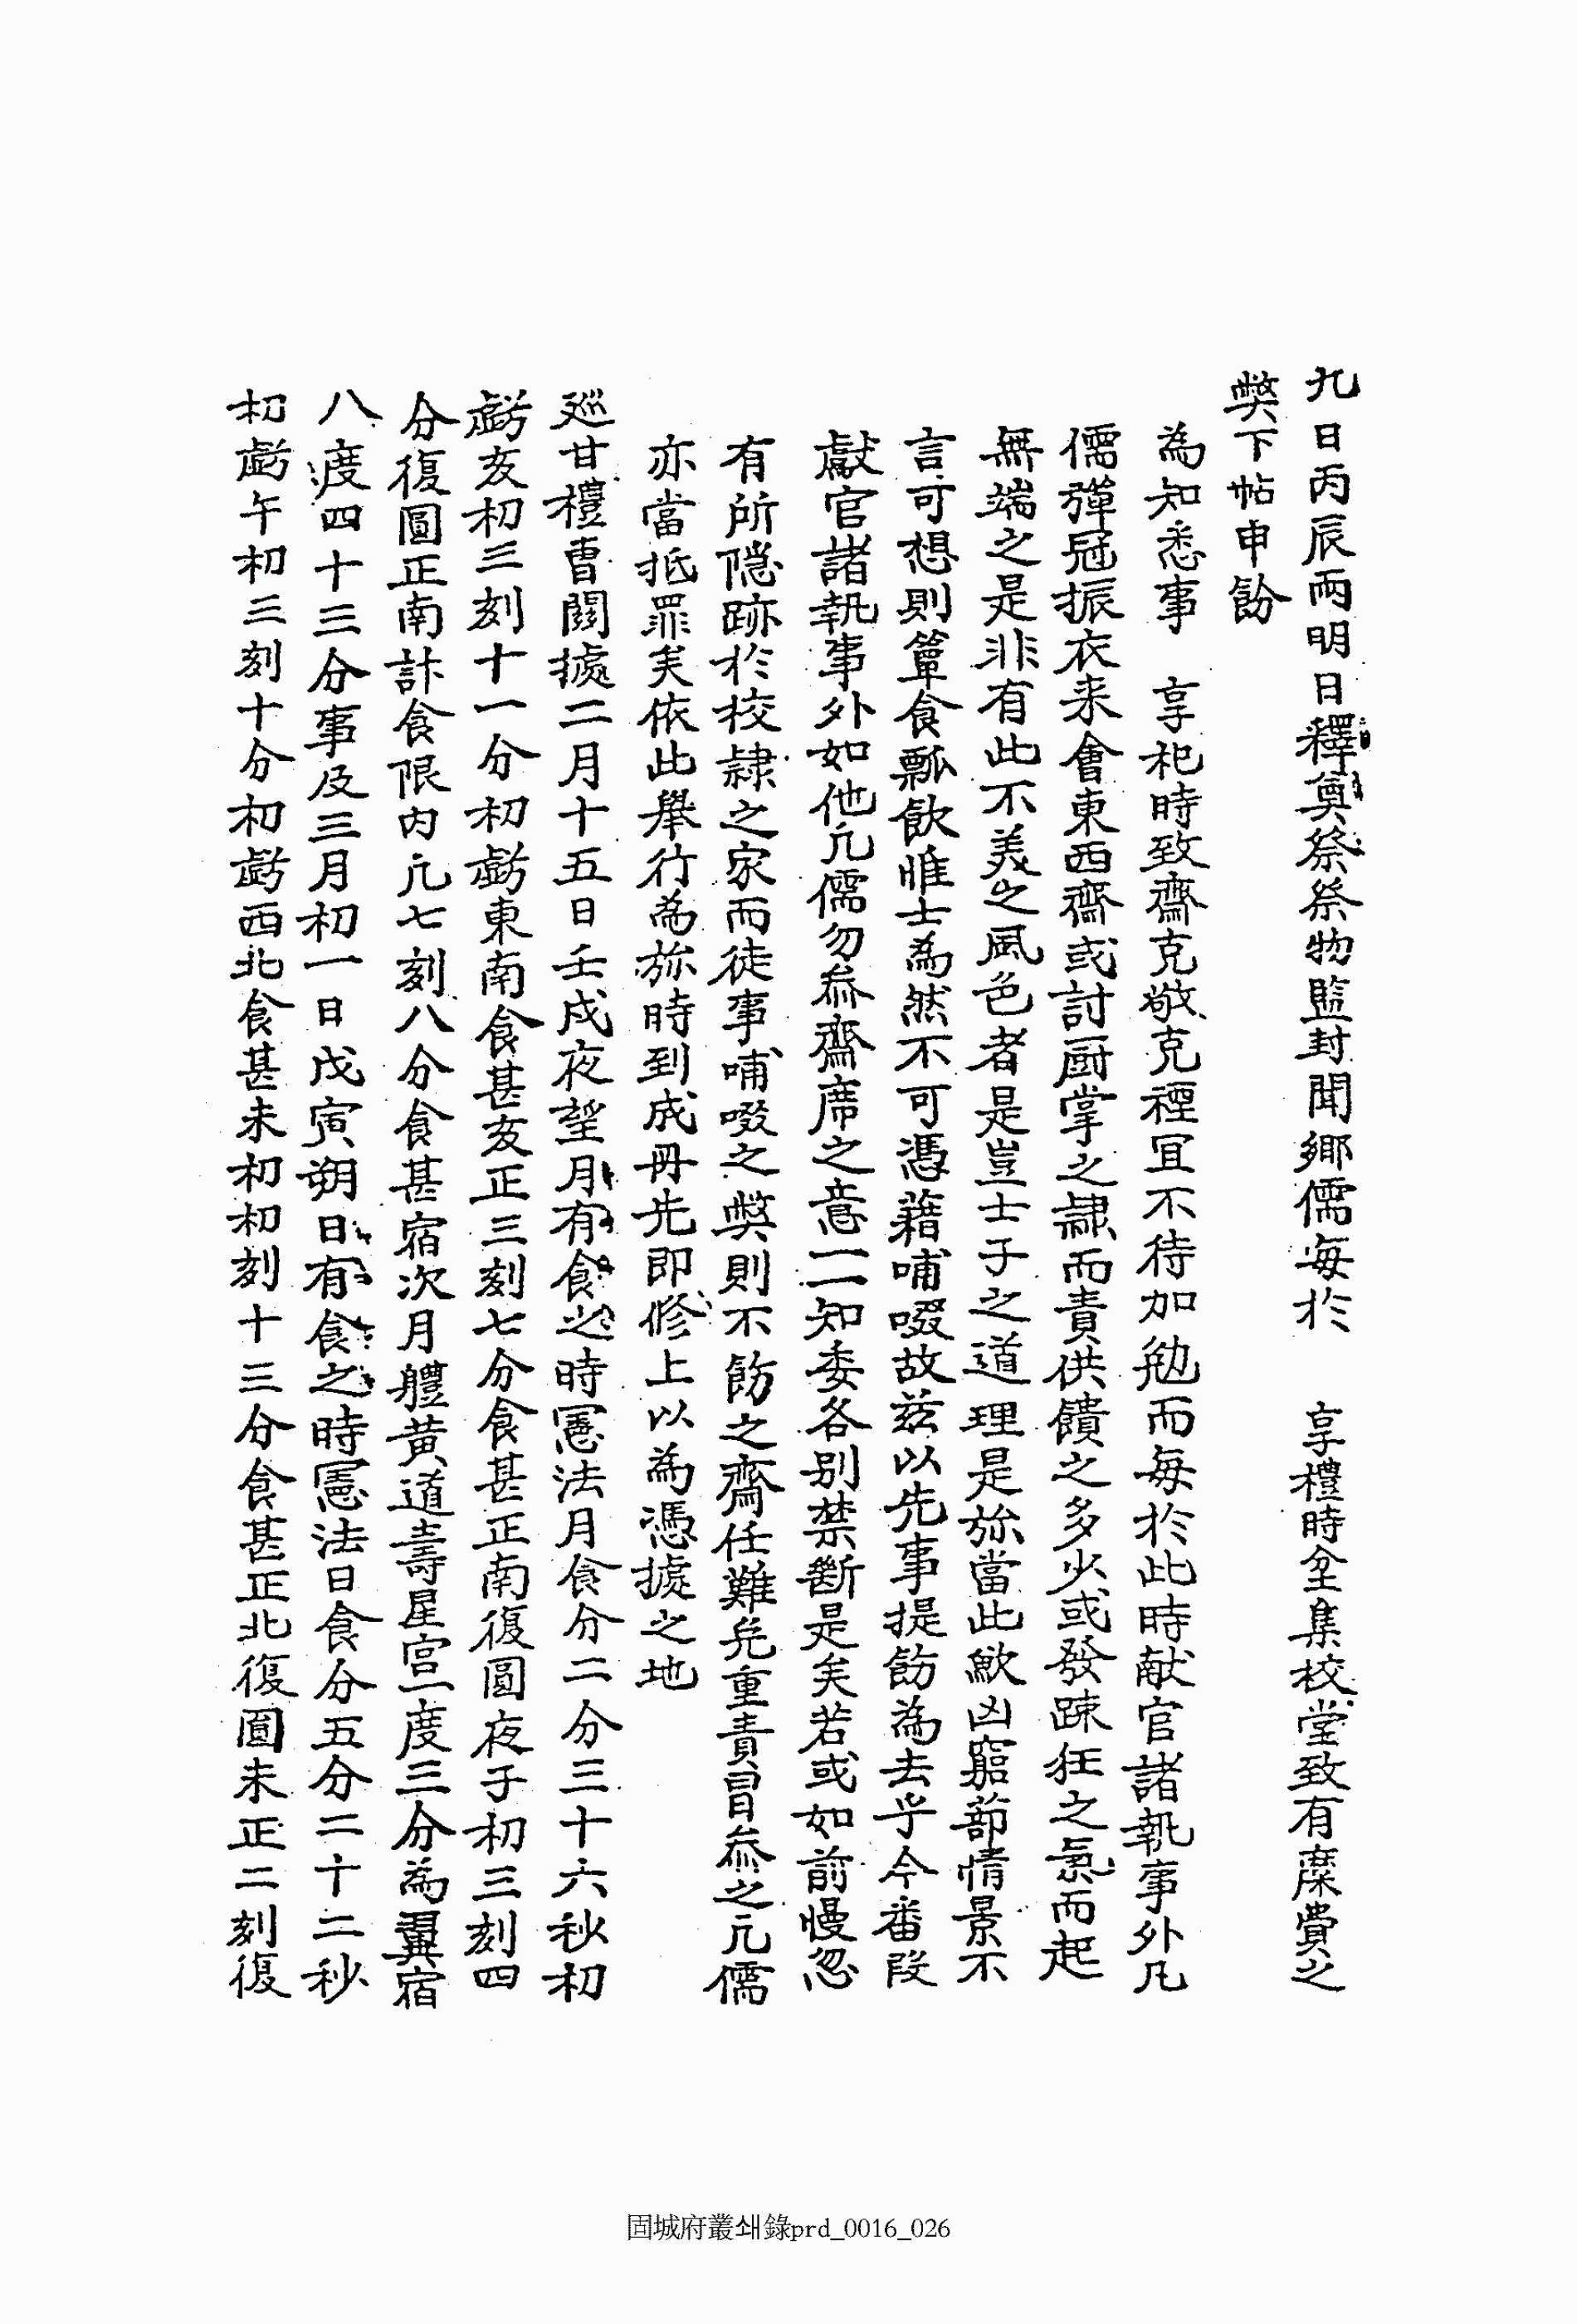 九日丙辰雨明日釋奠祭祭物監封聞鄕儒每於 享禮時坌集校堂致有糜費之
弊下帖申飭
為知悉事 享祀時致齋克敬克禋宜不待加勉而每於此時献官諸執事外凡
儒彈冠振衣来會東西齋或討厨掌之隷而責供饋之多少或發踈狂之氣而起
無端之是非有此不美之風色者是豈士子之道理是旀當此歉凶窮蔀情景不
言可想則簞食瓢飮惟士為然不可憑藉哺啜故玆以先事提飭為去乎今番段
獻官諸執事外如他凢儒勿叅齋席之意一一知委各别禁斷是矣若或如前慢忽
有所隐跡於校隷之家而徒事哺啜之弊則不飭之齋任難免重責冒叅之凢儒
亦當抵罪矣依此擧行為旀時到成冊先即修上以為憑據之地
廵甘禮曹關據二月十五日壬戌夜望月有食之時憲法月食分二分三十六秒初
虧亥初三刻十一分初虧東南食甚亥正三刻七分食甚正南復圓夜子初三刻四
分復圓正南計食限內凢七刻八分食甚宿次月軆黄道壽星宮一度三分為翼宿
八度四十三分事及三月初一日戊寅朔日有食之時憲法日食分五分二十二秒
初虧午初三刻十分初虧西北食甚未初初刻十三分食甚正北復圓未正二刻復
固城府叢쇄錄prd_0016_026